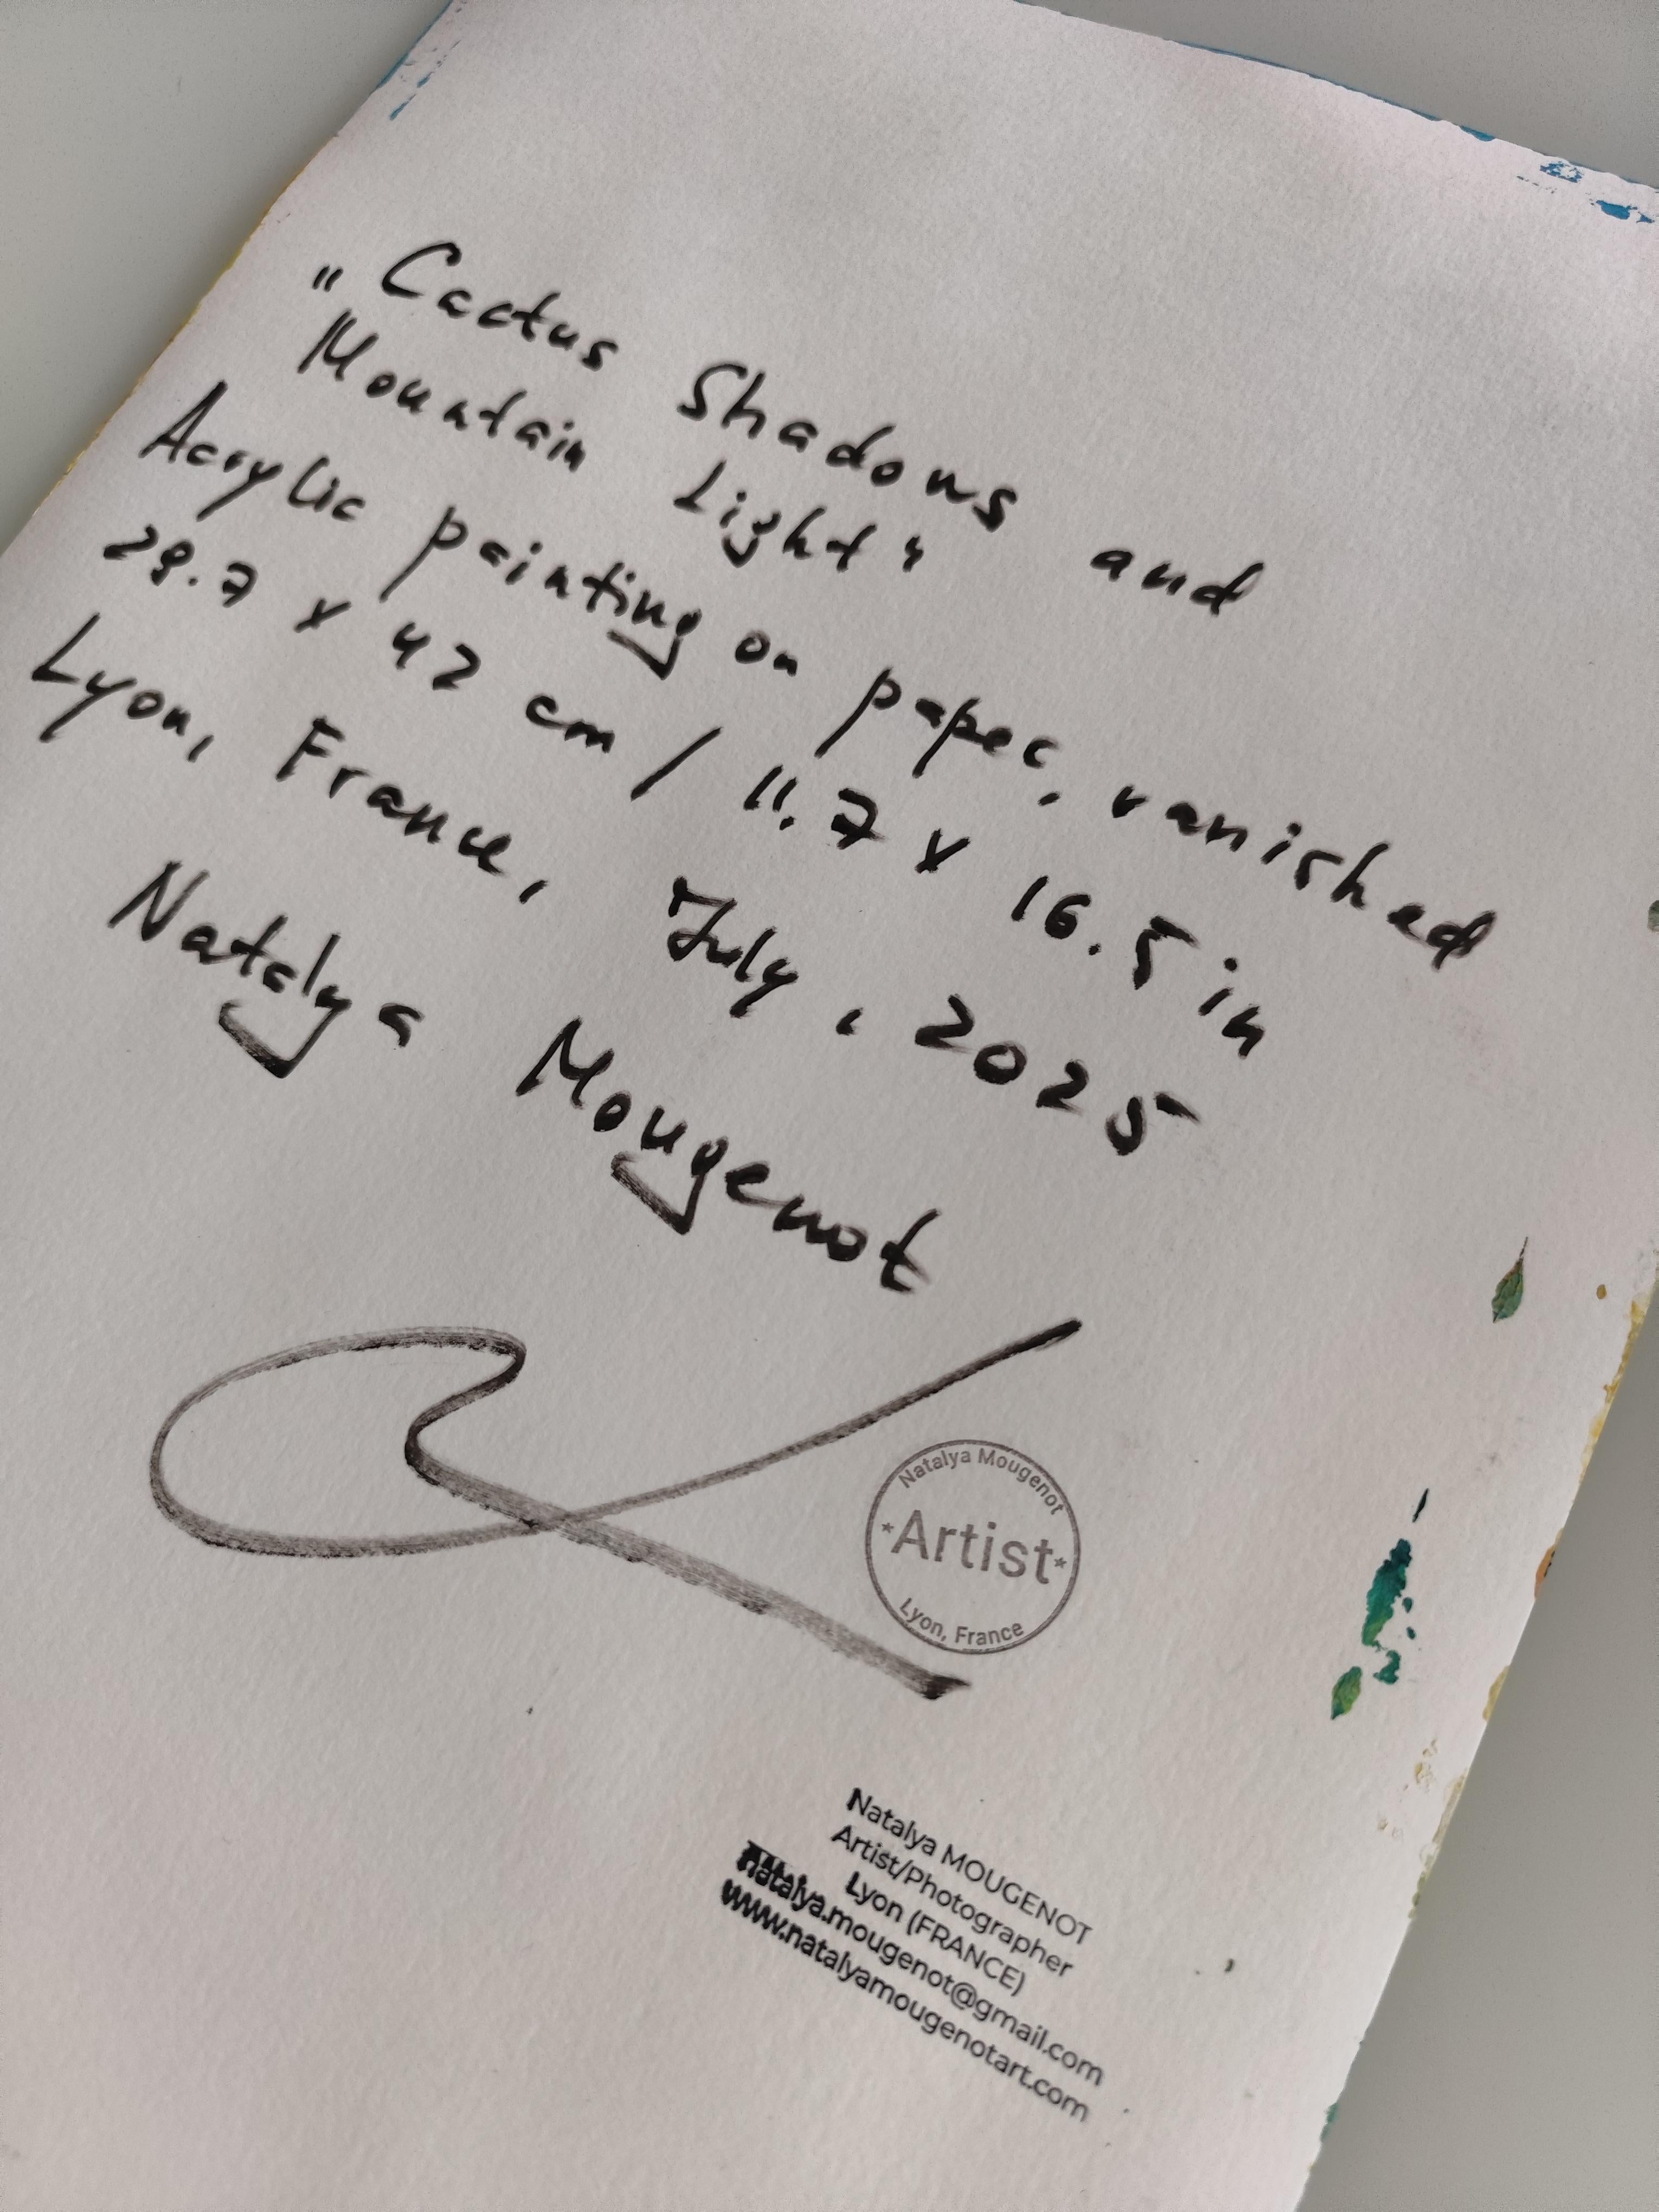 "Cactus Shadows and
Mountain Light"
Acrylic painting on paper, vanished
29.7 x 42 cm / 11.7 x 16.5 in
Lyon, France, July, 2025
Natalya Mougenot
Natalya Mougenot
*Artist*
Lyon, France
Natalya MOUGENOT
Artist/Photographer
Lyon (FRANCE)
natalya.mougenot@gmail.com
www.natalyamougenotart.com